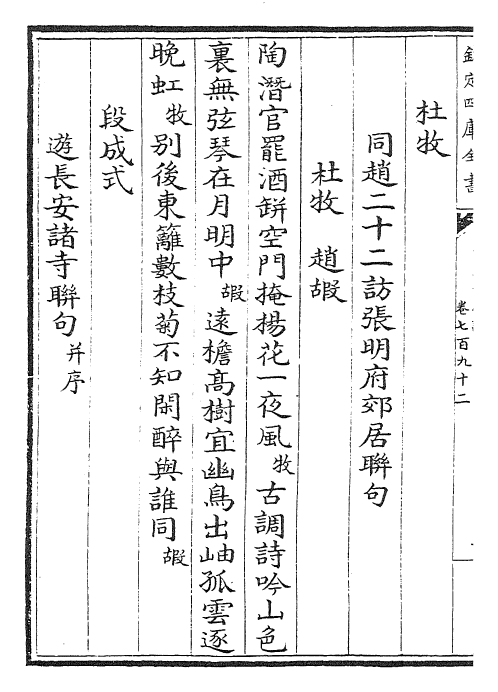 欽定四庫全書
卷七百九十二
杜牧
同趙二十二訪張明府郊居聯句
杜牧 趙嘏
陶潛官罷酒缾空門掩楊花一夜風牧古調詩吟山色
裏無弦琴在月明中嘏遠檐高樹宜幽鳥出岫孤雲逐
晚虹牧别後東籬數枝菊不知閑醉與誰同嘏
段成式
遊長安諸寺聯句并序